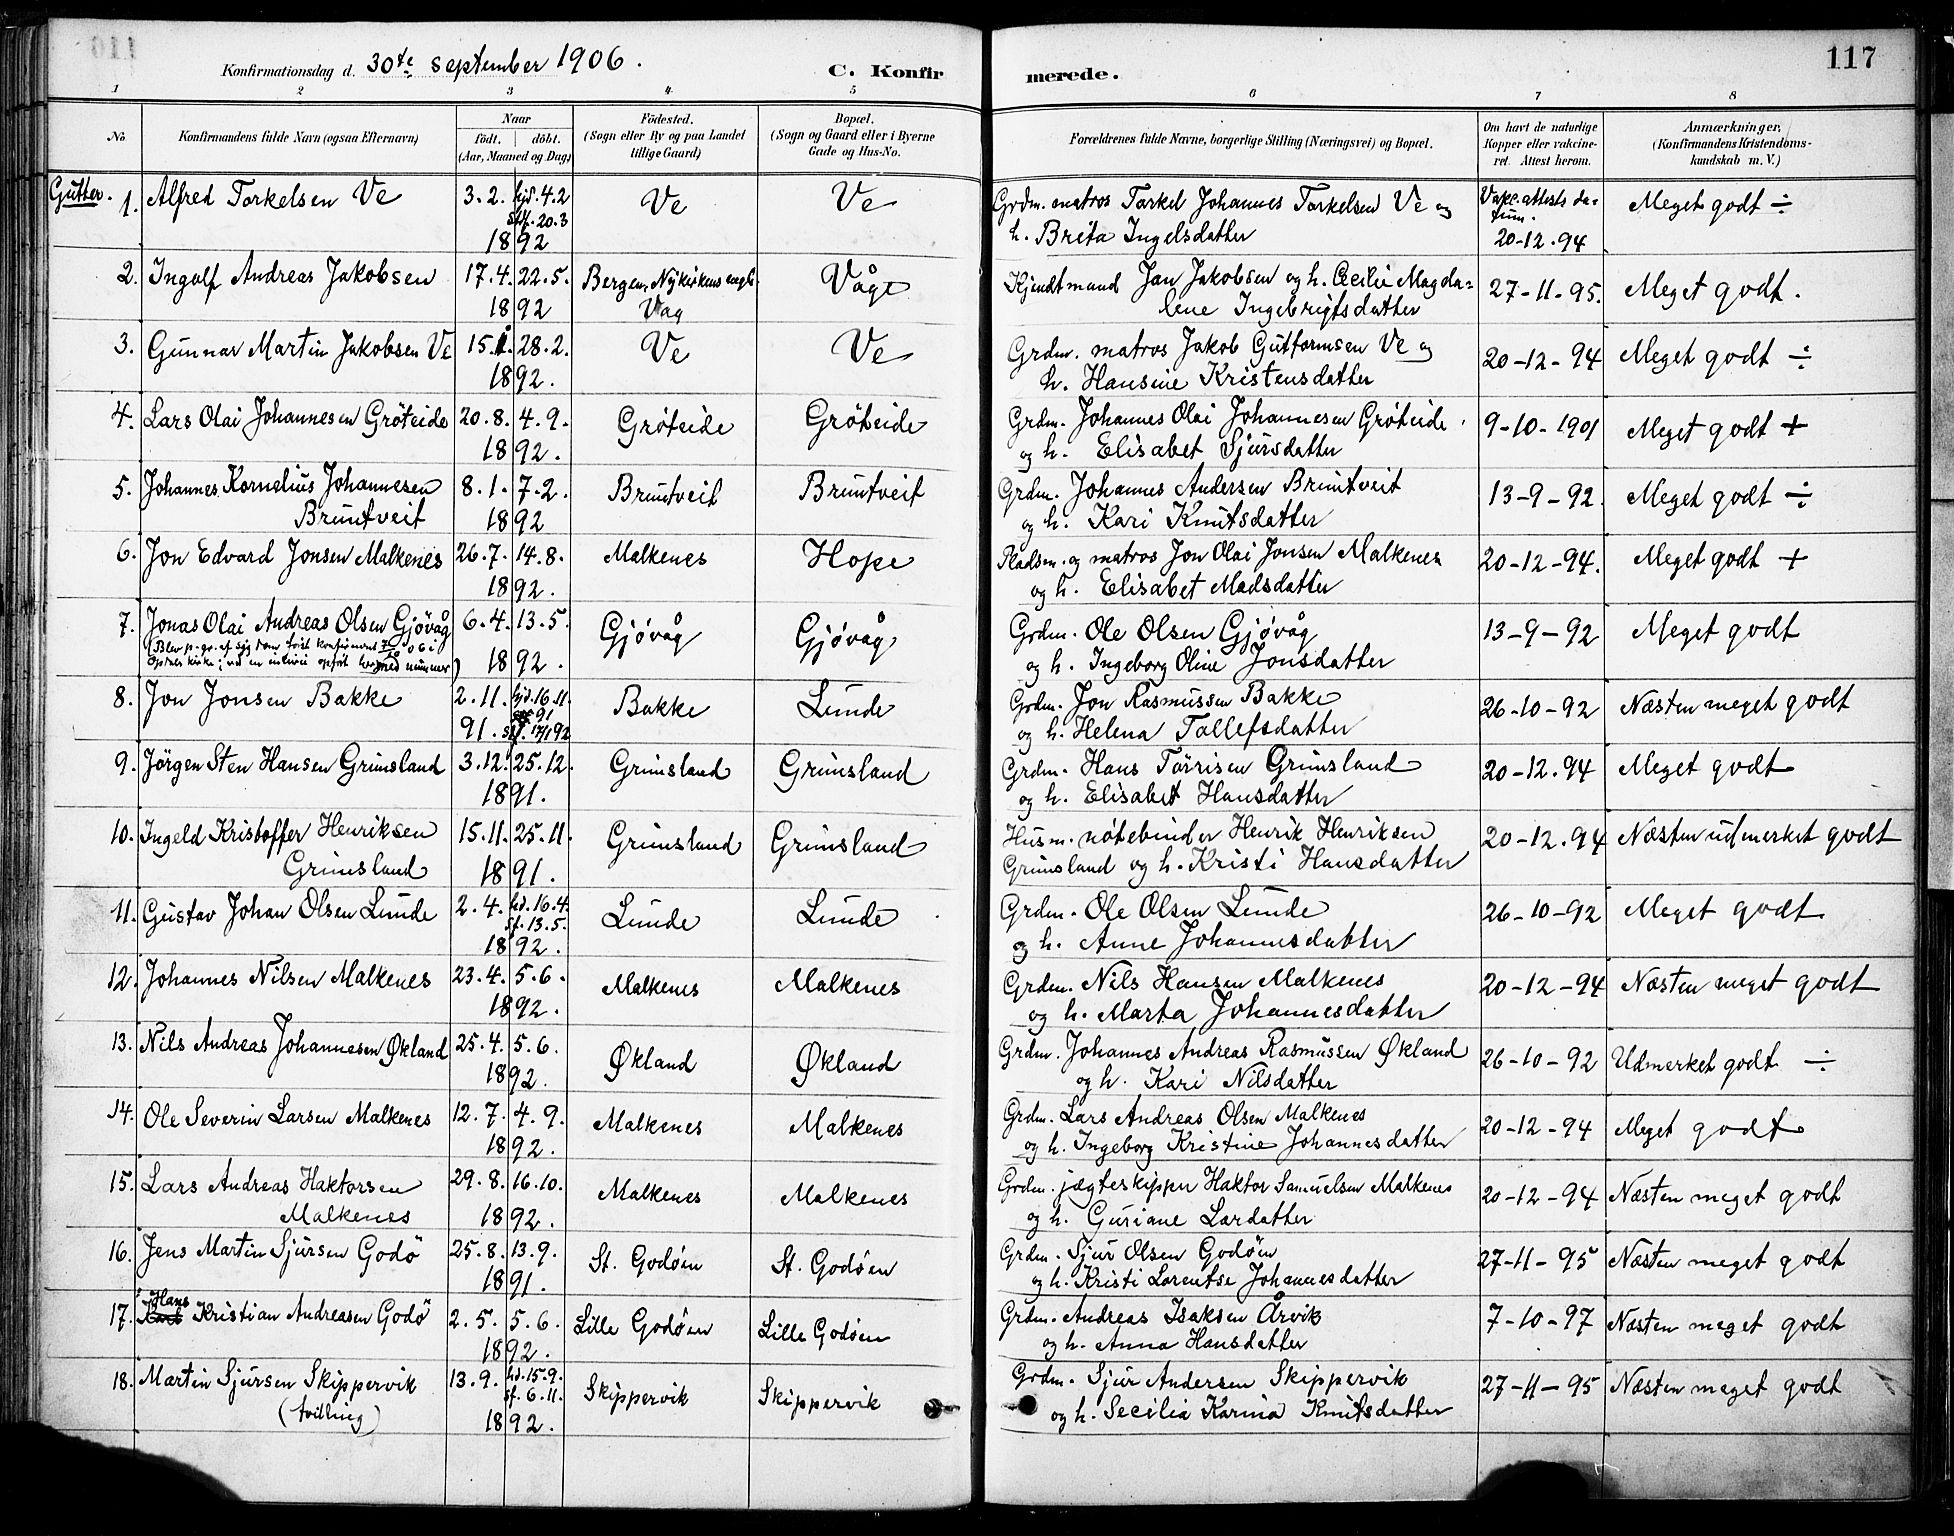 Konfirmationsdag d. 30te september 1906. C. Konfirmerede. 117
1 2 3 4 5 6 7 8
No. Konfirmandens fulde Navn (ogsaa Efternavn) Naar født. døbt. (Aar, Maaned og Dag) Fødested. (Sogn eller By og paa Landet tillige Gaard) Bopæl. (Sogn og Gaard eller i Byerne Gade og Hus-No. Forældrenes fulde Navne, borgerlige Stilling (Næringsvei) og Bopæl. Om havt de naturlige Kopper eller vakcineret. Attest herom. Anmærkninger. (Konfirmandens Kristendomskundskab m. V.)
Gutter. 1. Alfred Torkelsen Ve 3.2. hjd. 4.2 stf. 20.3 1892 Ve Ve Grdm. matros Torkel Johannes Torkelsen Ve og h. Brita Ingelsdatter Vakc. attests datum. 20-12.94 Meget godt ÷
2. Ingolf Andreas Jakobsen 17.4. 22.5. 1892 Bergen, Nykirkens Våg Våge Kjendtmand Jan Jakobsen og h. Cecilie Magdalene Ingebrigtsdatter 27-11-95. Meget godt.
3. Gunnar Martin Jakobsen Ve 15.1. 28.2. 1892. Ve Ve Grdm. matros Jakob Guttormsen Ve og h. Hansine Kristensdatter 20-12-94 Meget godt ÷
4. Lars Olai Johannesen Gröteide 20.8. 4.9. 1892. Gröteide Gröteide Grdm. Johannes Olai Johannesen Gröteide og h. Elisabet Sjursdatter 9-10-1901 Meget godt +
5. Johannes Kornelius Johannesen Bruntveit 8.1. 7.2. 1892 Bruntveit Bruntveit Grdm. Johannes Andersen Bruntveit og h. Kari Knutsdatter 13-9-92. Meget godt ÷
6. Jon Edvard Jonsen Malkenes 26.7. 14.8. 1892. Malkenes Hope Pladsm. og matros Jon Olai Jonsen Malkenes og h. Elisabet Madsdatter 20-12-94. Meget godt +
7. Jonas Olai Andreas Olsen Gjövåg (Blev p. gr. af syg dom först konfirmeret i Opdals kirke; med nummer) 6.4. 13.5. 1892. Gjøvåg Gjøvåg Grdm. Ole Olsen Gjøvåg og h. Ingeborg Oline Jonsdatter 13-9-92 Meget godt
8. Jon Jonsen Bakke 2.11. 91. hjd. 16.11. 91 17/1 92 Bakke Lunde Grdm. Jon Rasmussen Bakke og h. Helena Tollefsdatter 26-10-92 Næsten meget godt
9. Jörgen Sten Hansen Grimsland 3.12. 25.12. 1891. Grimsland Grimsland Grdm. Hans Torrisen Grimsland og h. Elisabet Hansdatter 20-12.94 Meget godt
10. Ingeld Kristoffer Henriksen Grimsland 15.11. 25.11. 1891. Grimsland Grimsland Husm. nötebinder Henrik Henriksen Grimsland og h. Kristi Hansdatter 20-12.94 Næsten udmerket godt
11. Gustav Johan Olsen Lunde 2.4. hd. 16.4. sf. 13.5. 1892. Lunde Lunde Grdm. Ole Olsen Lunde og h. Anne Johannesdatter 26-10-92 Meget godt
12. Johannes Nilsen Malkenes 23.4. 5.6. 1892. Malkenes Malkenes Grdm. Nils Hansen Malkenes og h. Marta Johannesdatter 20-12-94 Næsten meget godt
13. Nils Andreas Johannesen Økland 25.4. 5.6. 1892. Økland Økland Grdm. Johannes Andreas Rasmussen Økland og h. Kari Nilsdatter 26-10-92 Udmerket godt ÷
14. Ole Severin Larsen Malkenes 12.7. 4.9. 1892. Malkenes Malkenes Grdm. Lars Andreas Olsen Malkenes og h. Ingeborg Kristine Johannesdatter 20-12-94 Meget godt
15. Lars Andreas Haktorsen Malkenes 29.8. 16.10. 1892. Malkenes Malkenes Grdm. jægteskipper Haktor Samuelsen Malkenes og h. Guriane Lardatter 20-12-94 Næsten meget godt
16. Jens Martin Sjursen Godö 25.8. 13.9. 1891. St. Godöen St. Godöen Grdm. Sjur Olsen Godöen og h. Kristi Lorentse Johannesdatter 27-11-95 Næsten meget godt
17. Hans Kristian Andreasen Godö 2.5. 5.6. 1892. Lille Godöen Lille Godöen Grdm. Andreas Isaksen Årvik og h. Anna Hansdatter 7-10-97 Næsten meget godt
18. Martin Sjursen Skippervik (tvilling) 13.9. hd. 15.9. sf. 6.11. 1892. Skippervik Skippervik Grdm. Sjur Andersen Skippervik og h. Secilia Karina Knutsdatter 27-11-95 Næsten meget godt